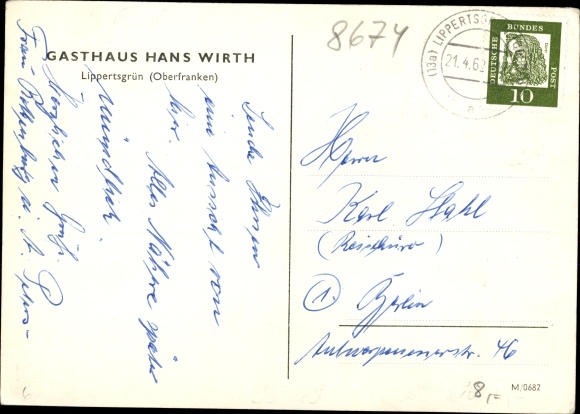 GASTHAUS HANS WIRTH
Lippertsgrün (Oberfranken)
8674
(13a) LIPPERTSG
21.4.62
DEUTSCHE BUNDES POST
Dürer
10
Sende Ihnen
eine Ansicht von
hier. Alles Nähere später
mündlich.
Herzlichen Gruß
Frau
Herrn
Karl Stahl
(Reisebüro)
① Berlin
Antwerpenerstr. 46
8,=
M/0682